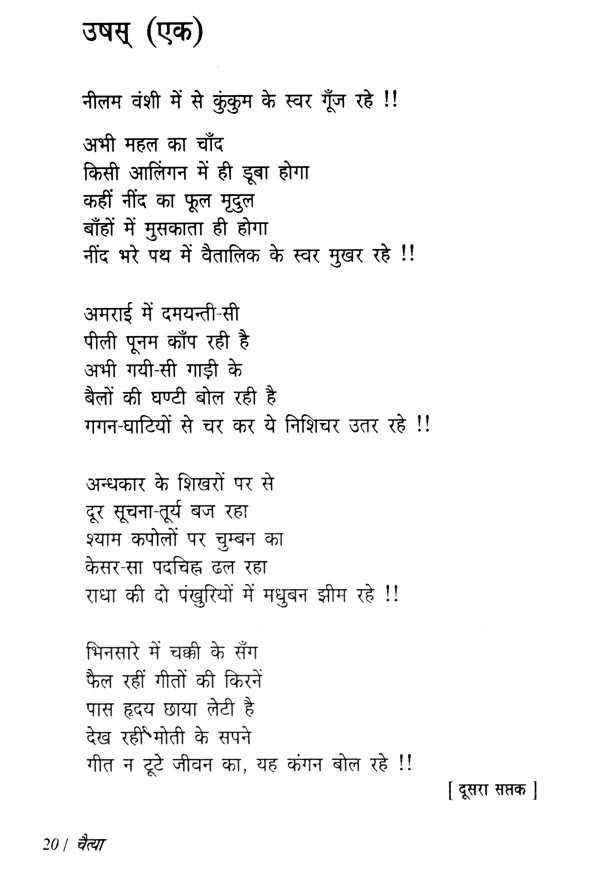 उषस् (एक)
नीलम वंशी में से कुंकुम के स्वर गूँज रहे !!
अभी महल का चाँद
किसी आलिंगन में ही डूबा होगा
कहीं नींद का फूल मृदुल
बाँहों में मुसकाता ही होगा
नींद भरे पथ में वैतालिक के स्वर मुखर रहे !!
अमराई में दमयन्ती-सी
पीली पूनम काँप रही है
अभी गयी-सी गाड़ी के
बैलों की घण्टी बोल रही है
गगन-घाटियों से चर कर ये निशिचर उतर रहे !!
अन्धकार के शिखरों पर से
दूर सूचना-तूर्य बज रहा
श्याम कपोलों पर चुम्बन का
केसर-सा पदचिह्न ढल रहा
राधा की दो पंखुरियों में मधुबन झीम रहे !!
भिनसारे में चक्की के सँग
फैल रहीं गीतों की किरनें
पास हृदय छाया लेटी है
देख रहीं मोती के सपने
गीत न टूटे जीवन का, यह कंगन बोल रहे !!
[ दूसरा सप्तक ]
20 / चैत्या